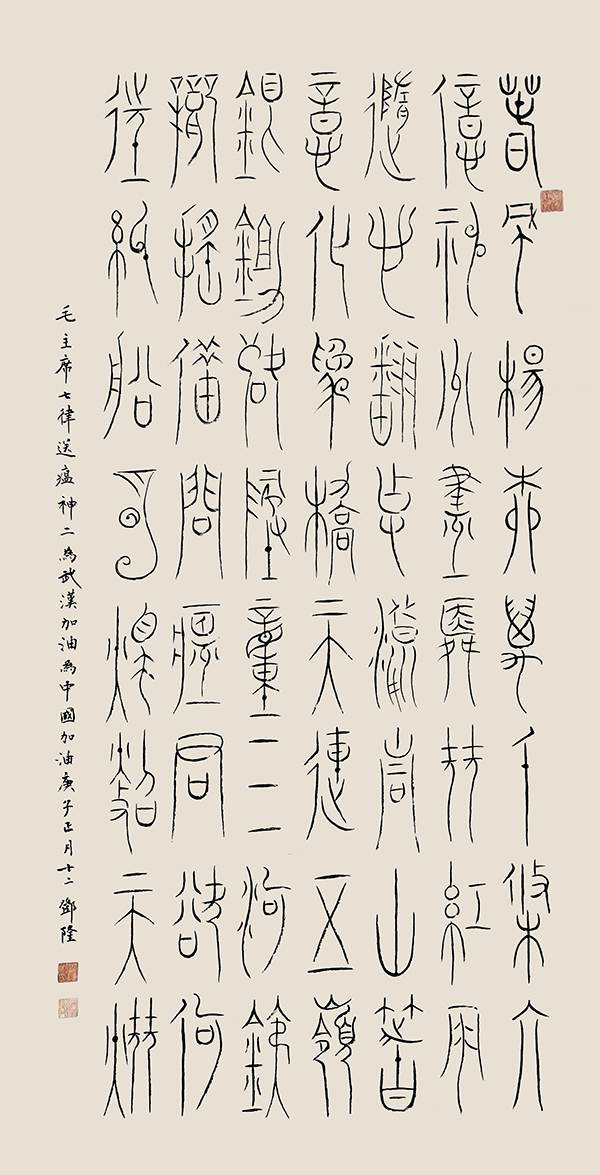 春風楊柳萬千條六
億神州盡舜堯紅雨
隨心翻作浪青山著
意化為橋天連五嶺
銀鋤落地動三河鐵
臂搖借問瘟君欲何
往紙船明燭照天燒
毛主席七律送瘟神二為武漢加油為中國加油庚子正月十二鄧隆